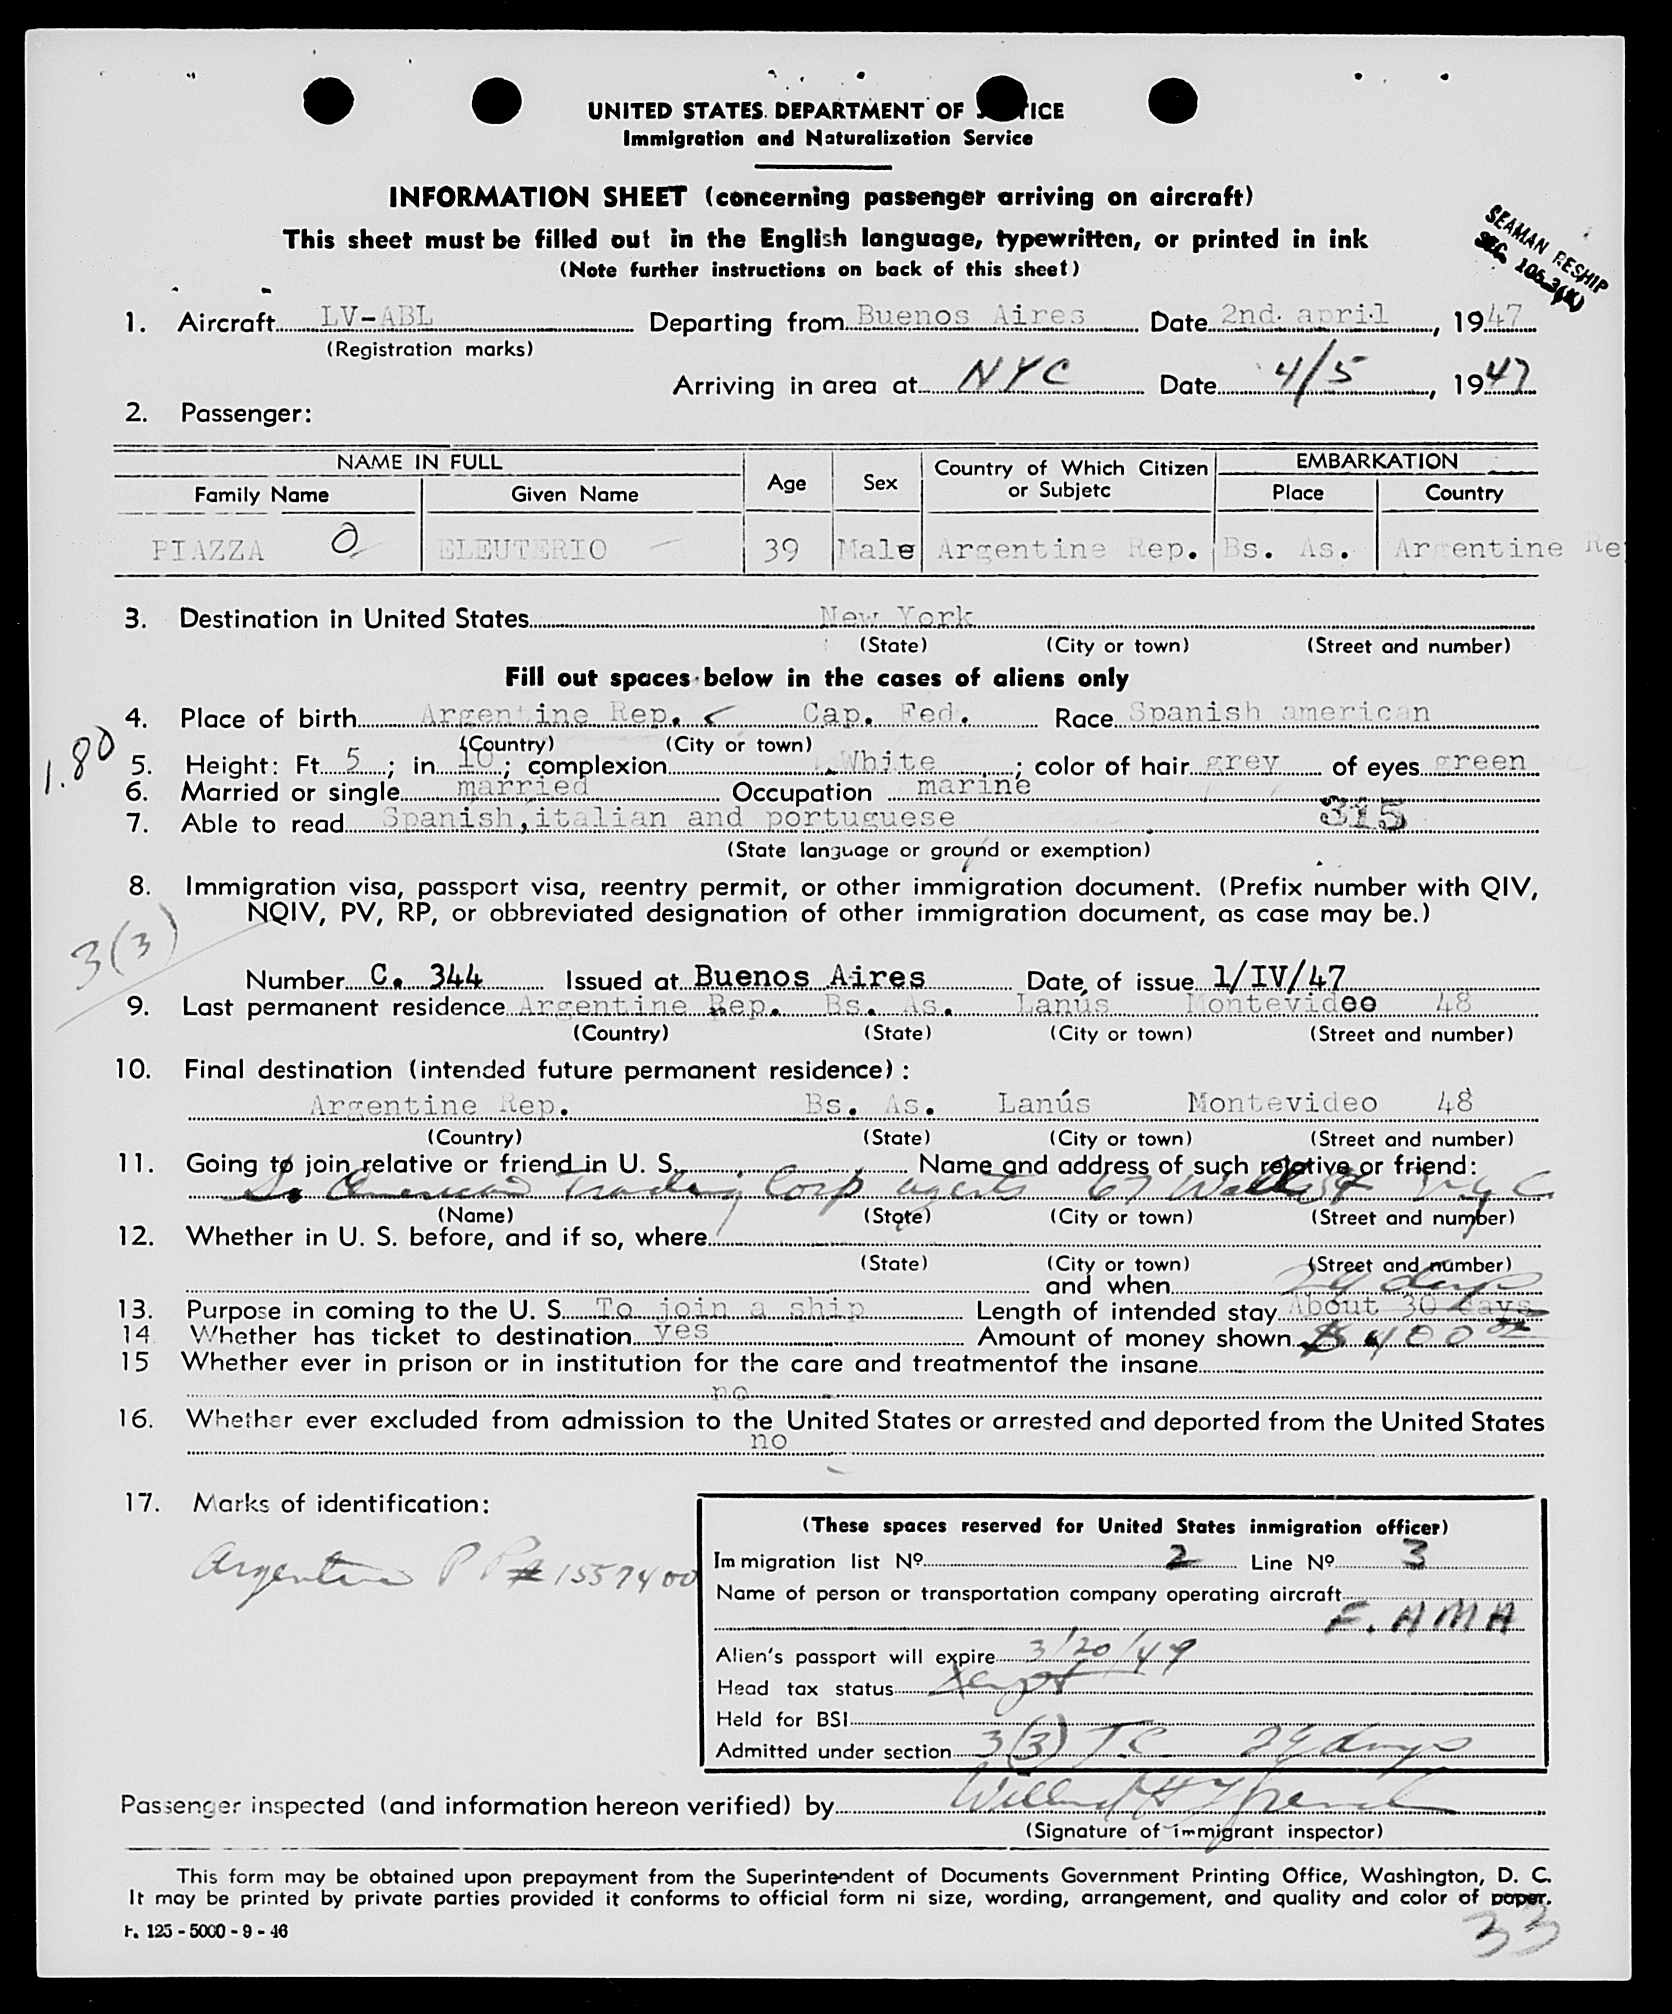 UNITED STATES DEPARTMENT OF ICE
Immigration and Naturalization Service
INFORMATION SHEET (concerning passenger arriving on aircraft)
This sheet must be filled out in the English language, typewritten, or printed in ink
(Note further instructions on back of this sheet)
SEAMAN RESHIP
SEC. 105.3(K)
1. Aircraft LV-ABL Departing from Buenos Aires Date 2nd. april, 1947
(Registration marks)
Arriving in area at NYC Date 4/5, 1947
2. Passenger:
NAME IN FULL Age Sex Country of Which Citizen or Subjetc EMBARKATION
Family Name Given Name Place Country
PIAZZA ELEUTERIO 39 Male Argentine Rep. Bs. As. Argentine Re
3. Destination in United States New York
(State) (City or town) (Street and number)
Fill out spaces below in the cases of aliens only
4. Place of birth Argentine Rep. Cap. Fed. Race Spanish american
(Country) (City or town)
1.80
5. Height: Ft. 5; in. 10; complexion White; color of hair grey of eyes green
6. Married or single married Occupation marine
7. Able to read Spanish, italian and portuguese 315
(State language or ground or exemption)
8. Immigration visa, passport visa, reentry permit, or other immigration document. (Prefix number with QIV,
NQIV, PV, RP, or obbreviated designation of other immigration document, as case may be.)
3(3)
Number C. 344 Issued at Buenos Aires Date of issue 1/IV/47
9. Last permanent residence Argentine Rep. Bs. As. Lanús Montevideo 48
(Country) (State) (City or town) (Street and number)
10. Final destination (intended future permanent residence):
Argentine Rep. Bs. As. Lanús Montevideo 48
(Country) (State) (City or town) (Street and number)
11. Going to join relative or friend in U. S. Name and address of such relative or friend:
So American Trading Corp agents 67 Wall St N.Y.C.
(Name) (State) (City or town) (Street and number)
12. Whether in U. S. before, and if so, where
(State) (City or town) (Street and number)
and when
29 days
13. Purpose in coming to the U. S. To join a ship Length of intended stay About 30 days
14 Whether has ticket to destination yes Amount of money shown $400
15 Whether ever in prison or in institution for the care and treatmentof the insane
no
16. Whether ever excluded from admission to the United States or arrested and deported from the United States
no
17. Marks of identification:
Argentine PP# 1557400
(These spaces reserved for United States inmigration officer)
Immigration list Nº 2 Line Nº 3
Name of person or transportation company operating aircraft
F. AMA
Alien's passport will expire 3/20/49
Head tax status
Held for BSI
Admitted under section 3(3) T.C. 29 days
Passenger inspected (and information hereon verified) by
(Signature of immigrant inspector)
This form may be obtained upon prepayment from the Superintendent of Documents Government Printing Office, Washington, D. C.
It may be printed by private parties provided it conforms to official form ni size, wording, arrangement, and quality and color of paper.
F. 125 - 5000 - 9 - 46
33